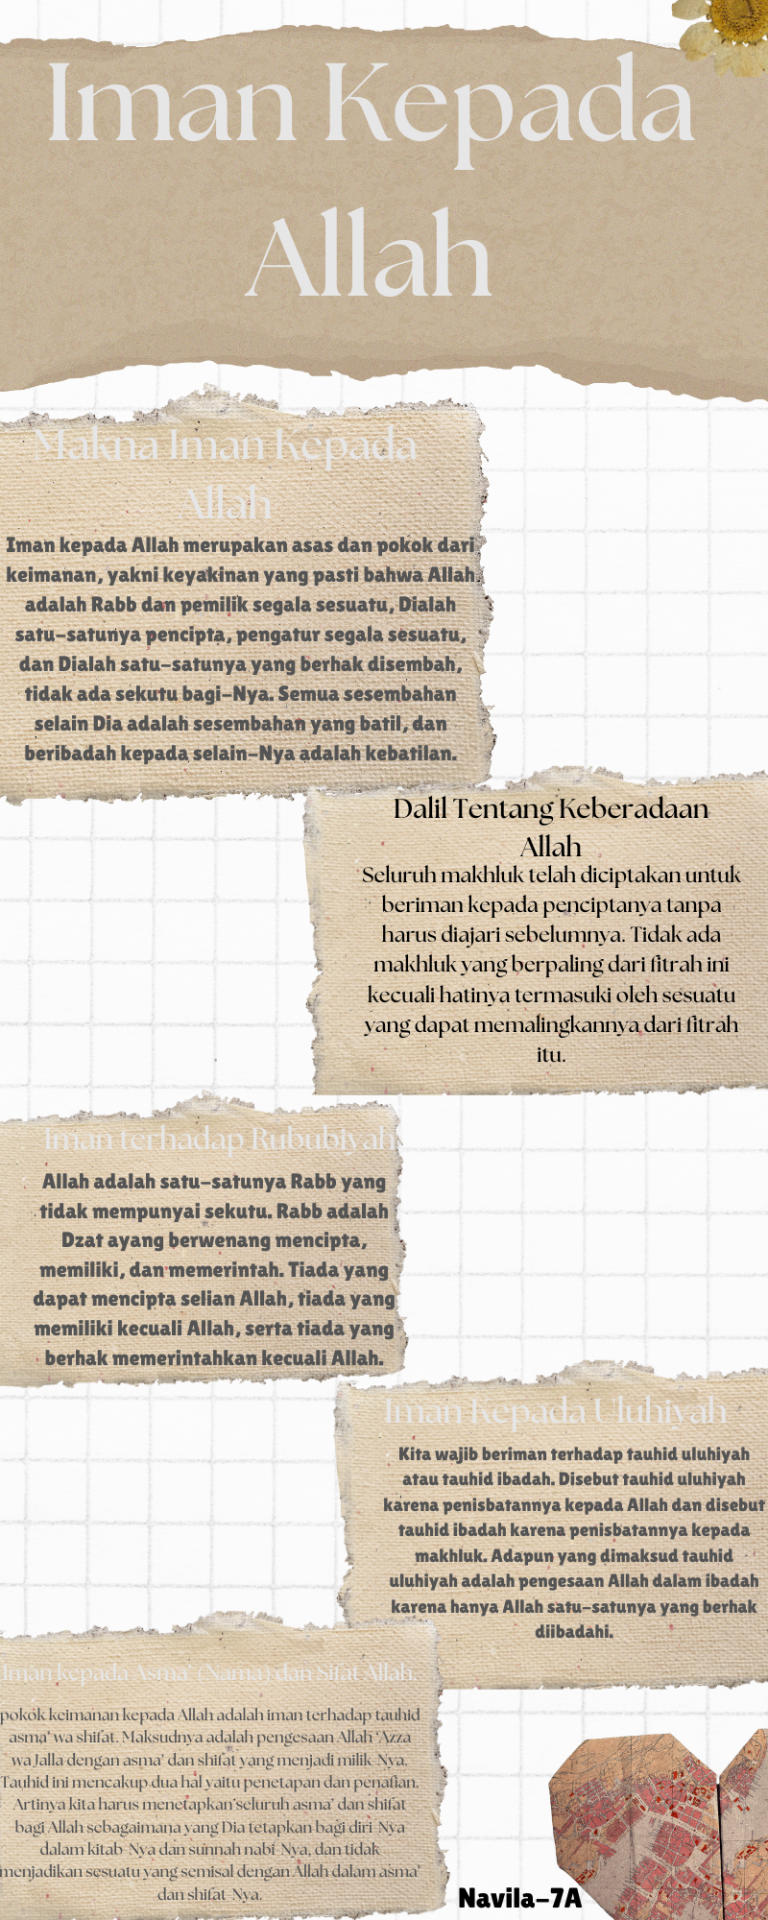 Iman Kepada
Allah
Makna Iman Kepada
Allah
Iman kepada Allah merupakan asas dan pokok dari
keimanan, yakni keyakinan yang pasti bahwa Allah
adalah Rabb dan pemilik segala sesuatu, Dialah
satu-satunya pencipta, pengatur segala sesuatu,
dan Dialah satu-satunya yang berhak disembah,
tidak ada sekutu bagi-Nya. Semua sesembahan
selain Dia adalah sesembahan yang batil, dan
beribadah kepada selain-Nya adalah kebatilan.
Dalil Tentang Keberadaan
Allah
Seluruh makhluk telah diciptakan untuk
beriman kepada penciptanya tanpa
harus diajari sebelumnya. Tidak ada
makhluk yang berpaling dari fitrah ini
kecuali hatinya termasuki oleh sesuatu
yang dapat memalingkannya dari fitrah
itu.
Iman terhadap Rububiyah
Allah adalah satu-satunya Rabb yang
tidak mempunyai sekutu. Rabb adalah
Dzat ayang berwenang mencipta,
memiliki, dan memerintah. Tiada yang
dapat mencipta selian Allah, tiada yang
memiliki kecuali Allah, serta tiada yang
berhak memerintahkan kecuali Allah.
Iman Kepada Uluhiyah
Kita wajib beriman terhadap tauhid uluhiyah
atau tauhid ibadah. Disebut tauhid uluhiyah
karena penisbatannya kepada Allah dan disebut
tauhid ibadah karena penisbatannya kepada
makhluk. Adapun yang dimaksud tauhid
uluhiyah adalah pengesaan Allah dalam ibadah
karena hanya Allah satu-satunya yang berhak
diibadahi.
Iman kepada Asma' (Nama) dan Sifat Allah.
pokok keimanan kepada Allah adalah iman terhadap tauhid
asma' wa shifat. Maksudnya adalah pengesaan Allah 'Azza
wa Jalla dengan asma' dan shifat yang menjadi milik-Nya.
Tauhid ini mencakup dua hal yaitu penetapan dan penafian.
Artinya kita harus menetapkan seluruh asma' dan shifat
bagi Allah sebagaimana yang Dia tetapkan bagi diri-Nya
dalam kitab-Nya dan sunnah nabi-Nya, dan tidak
menjadikan sesuatu yang semisal dengan Allah dalam asma'
dan shifat-Nya.
Navila-7A